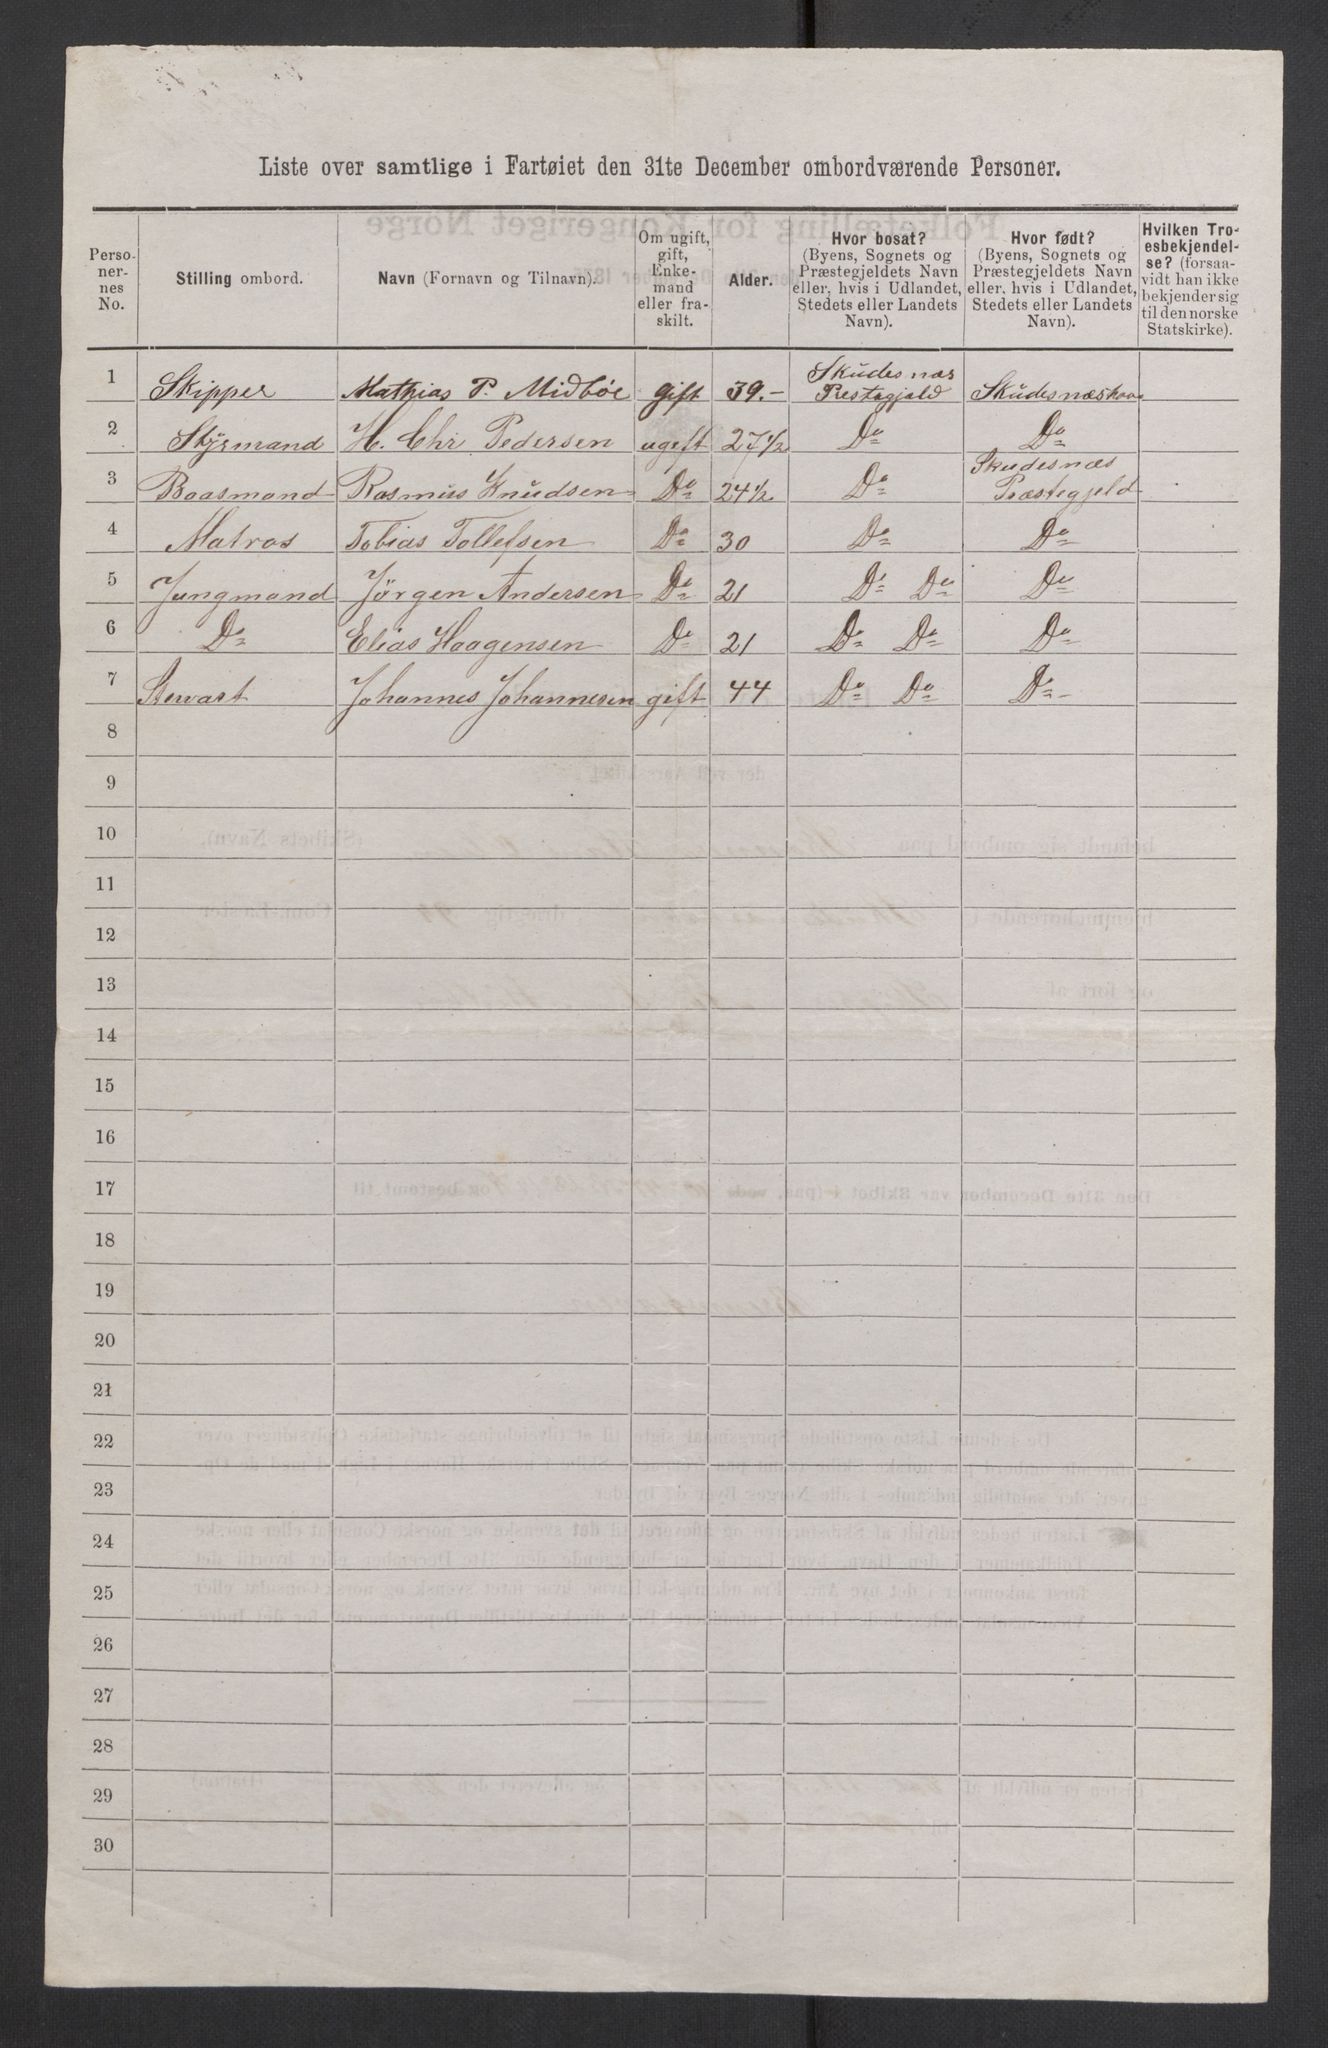 Liste over samtlige i Fartøiet den 31te December ombordværende Personer.
Perso-
ner-
nes
No.
Stilling ombord.
Navn (Fornavn og Tilnavn).
Om ugift,
gift,
Enke-
mand
eller fra-
skilt.
Alder.
Hvor bosat?
(Byens, Sognets og
Præstegjeldets Navn
eller, hvis i Udlandet,
Stedets eller Landets
Navn).
Hvor født?
(Byens, Sognets og
Præstegjeldets Navn
eller, hvis i Udlandet,
Stedets eller Landets
Navn).
Hvilken Tro-
esbekjendel-
se? (forsaa-
vidt han ikke
bekjender sig
til den norske
Statskirke).
1 Skipper Mathias P. Midbøe gift 39.- Skudesnæs
Prestegjeld Skudesnæshavn
2 Styrmand H. Chr. Pedersen ugift 27 1/2 Do Do
3 Baasmand Rasmus Knudsen Do 24 1/2 Do Skudesnæs
Præstegjeld
4 Matros Tobias Tollefsen Do 30 Do Do
5 Jungmand Jörgen Andersen Do 21 Do Do Do
6 Do Elias Haagensen Do 21 Do Do Do
7 Stewart Johannes Johannesen gift 44 Do Do Do
8
9
10
11
12
13
14
15
16
17
18
19
20
21
22
23
24
25
26
27
28
29
30